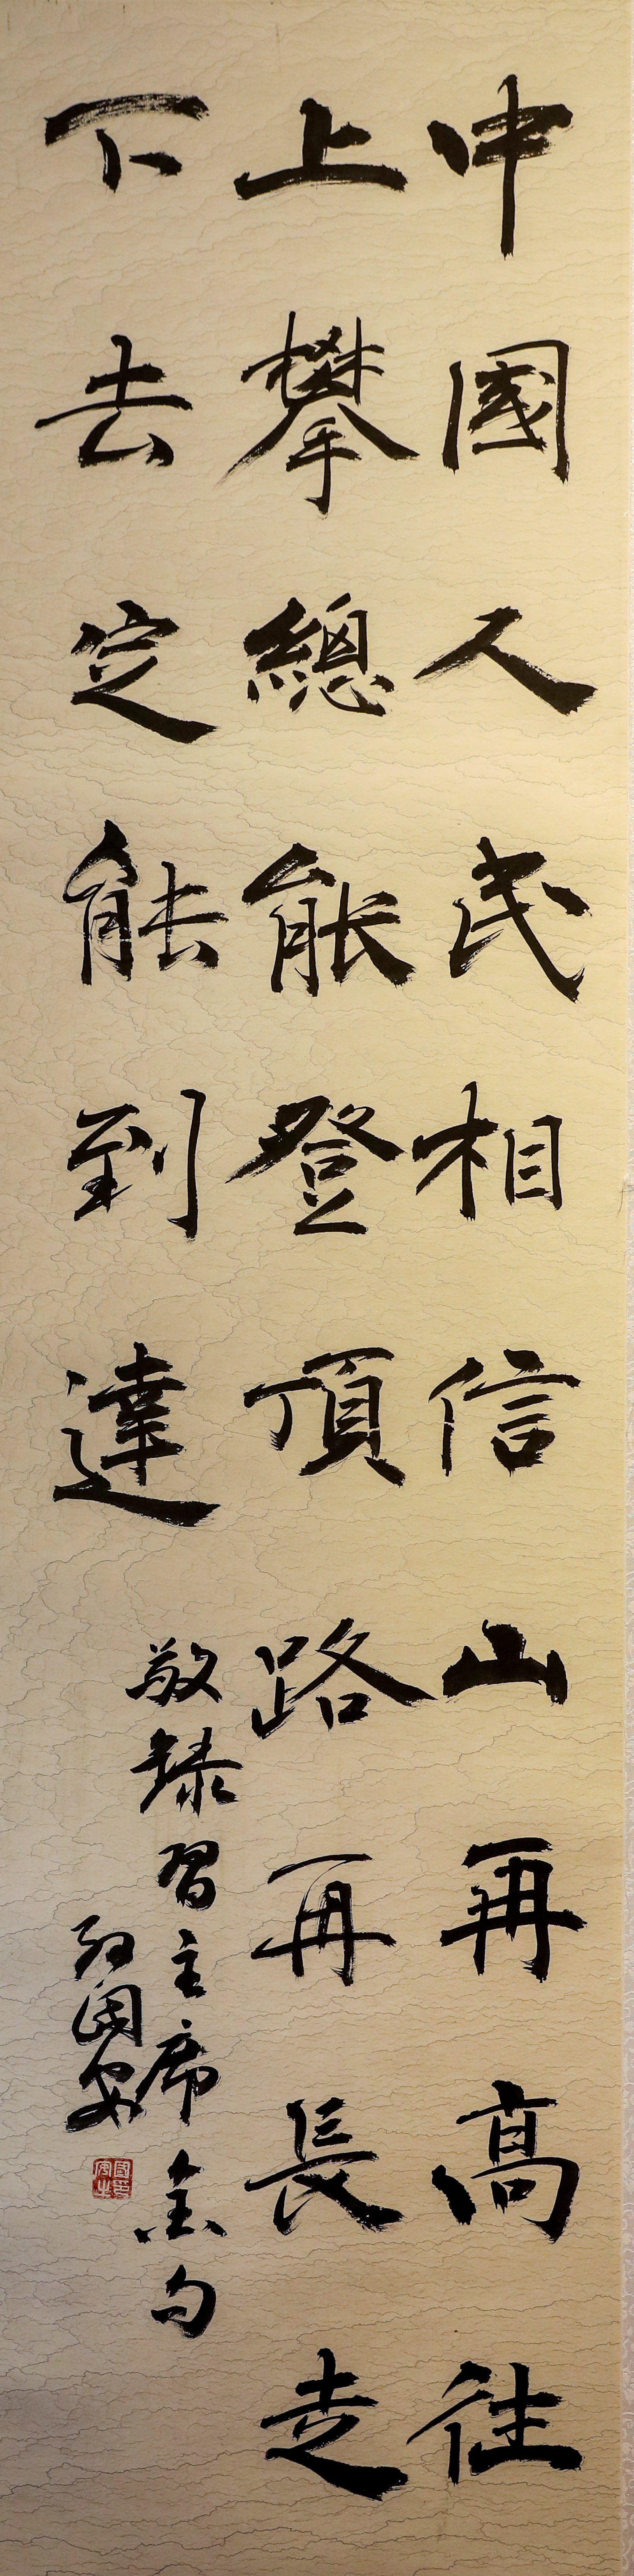 中國人民相信山再高往
上攀總能登頂路再長走
下去定能到達
敬録習主席金句
國安